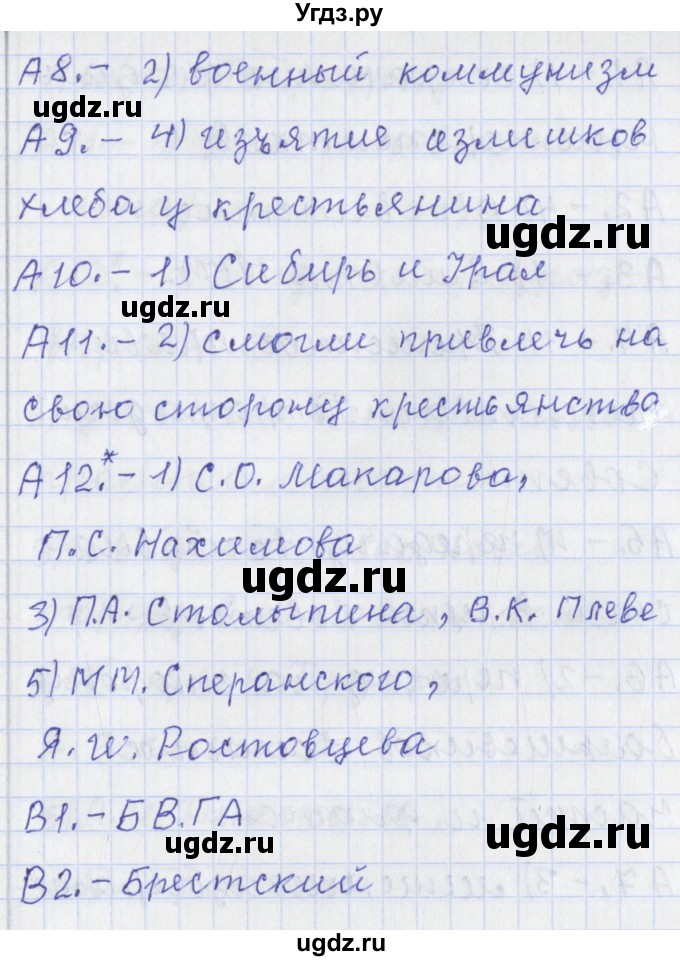 Угдз.ру
А8.- 2) военный коммунизм
ugdz.ru
А9.- 4) изъятие излишков
хлеба у крестьянина
ugdz.ru
А10.- 1) Сибирь и Урал
ugdz.ru
А11.- 2) смогли привлечь на
свою сторону крестьянства
А12.*- 1) С.О. Макарова,
П.С. Нахимова
ugdz.ru
3) П.А. Столыпина, В.К. Плеве
5) М.М. Сперанского,
ugdz.ru
Я.И. Ростовцева
В1.- БВГА
ugdz.ru
ugdz.ru
В2.- Брестский
ugdz.ru